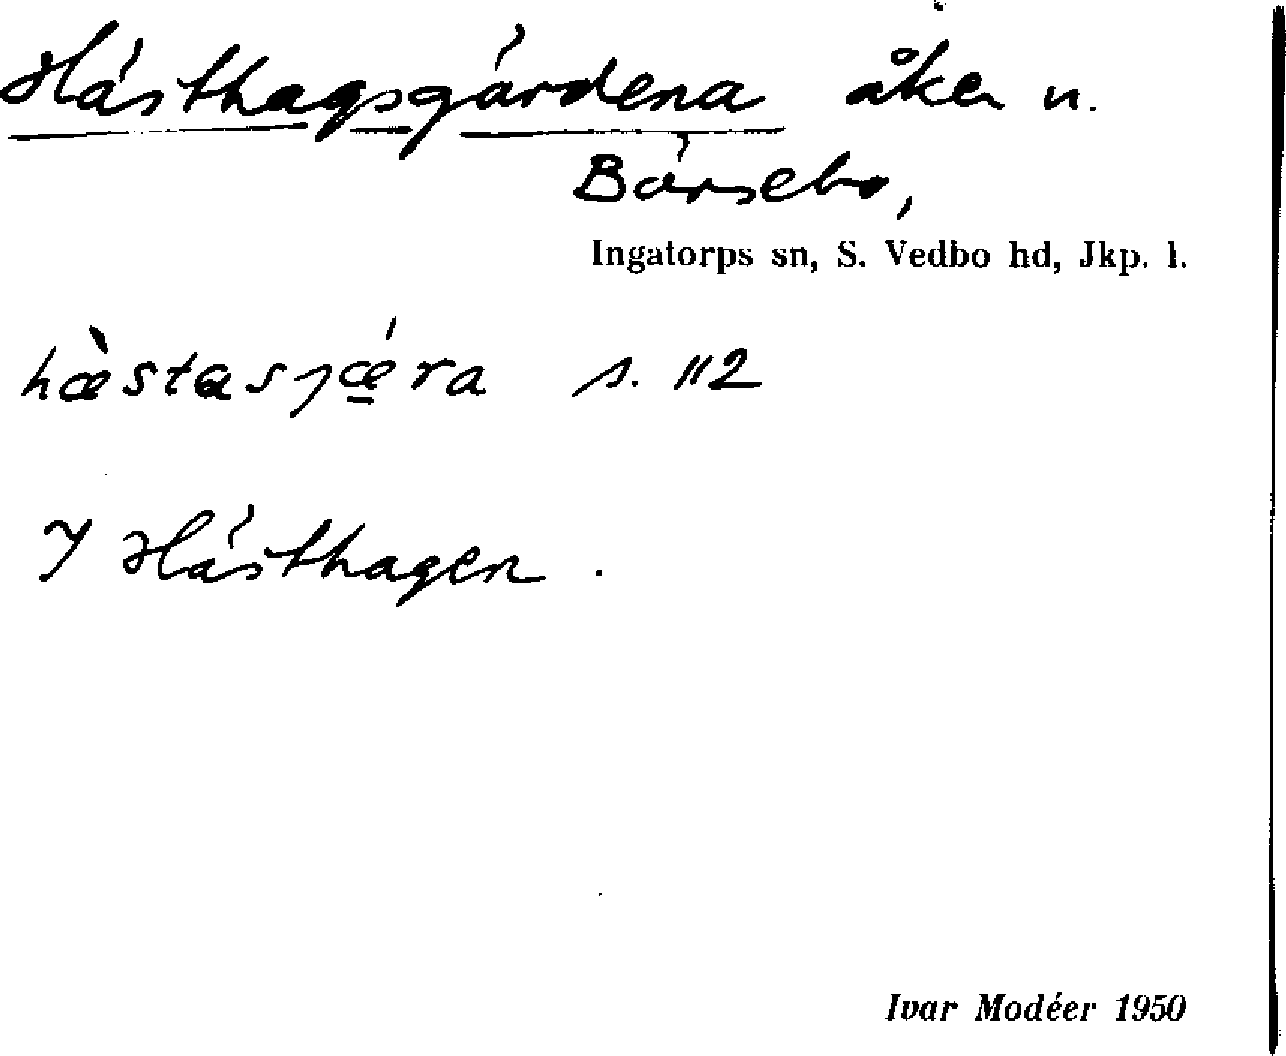 Hästhagsgärdena åker n.
Bärsebo,
Ingatorps sn, S. Vedbo hd, Jkp. l.
hæ̀stasjǽ̱ra s. 112
I Hästhagen.
Ivar Modéer 1950